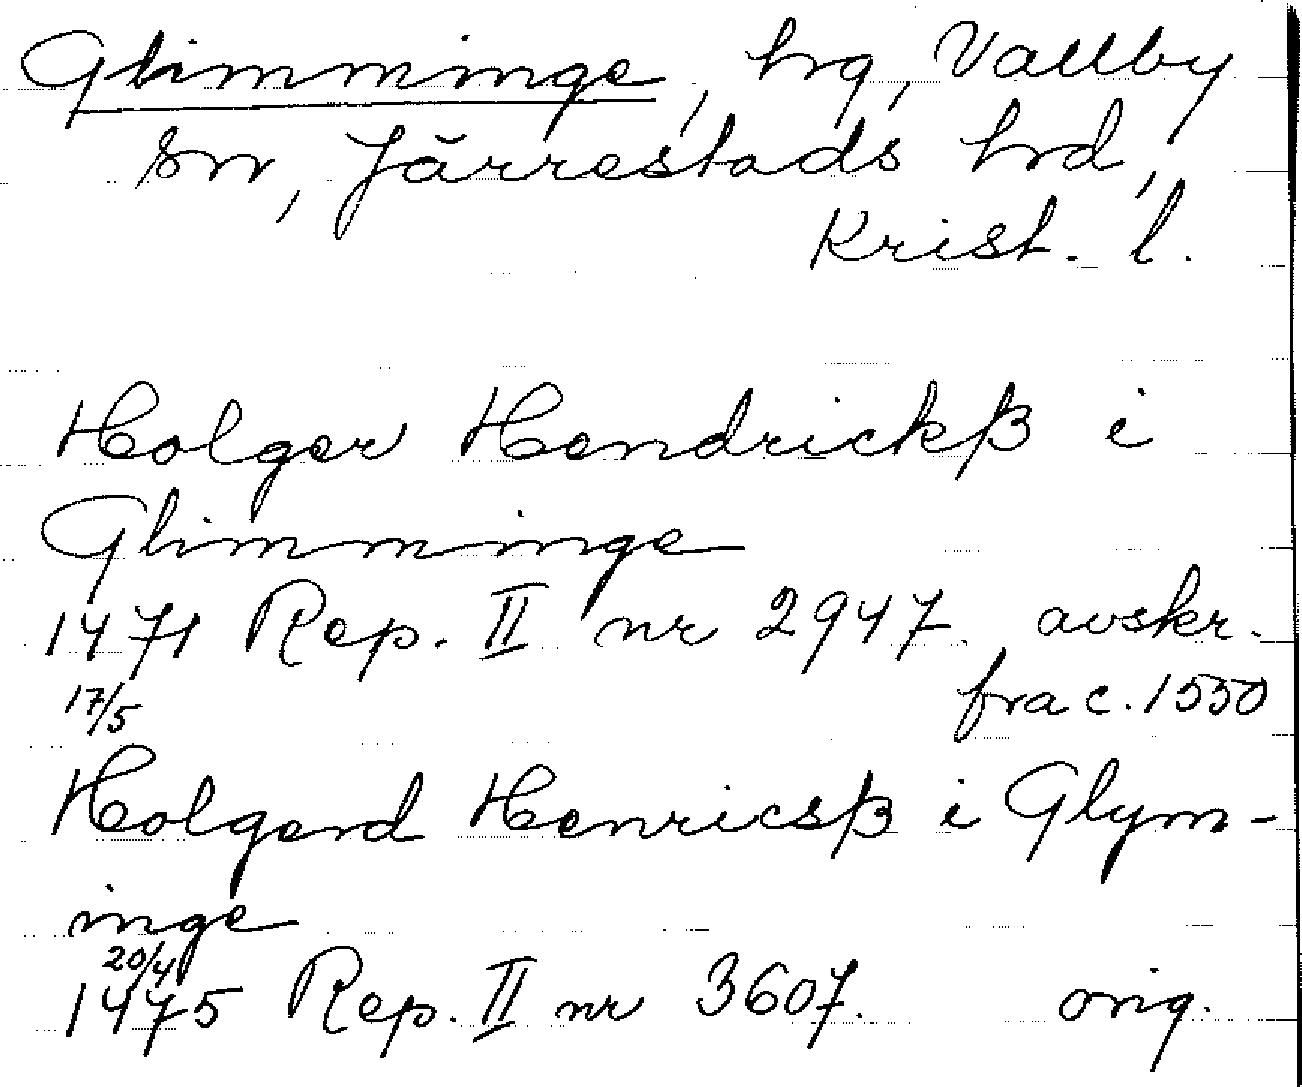 Glimminge, hrg, Vallby
sn, Järrestads hrd,
Krist. l.
Holger Hendrickß i
Glimminge
1471 Rep. II nr 2947. avskr.
17/5 fra c. 1550
Holgerd Henricsß i Glym-
inge
20/4
1475 Rep. II nr 3607. orig.